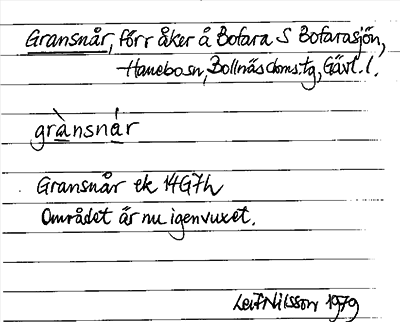 Gransnår, förr åker å Bofara S Bofarasjön,
Hanebosn, Bollnäs doms.tg, Gävl. l.
grà̱nsná̱r
Gransnår ek 14G7h
Området är nu igenvuxet.
Leif Nilsson 1979